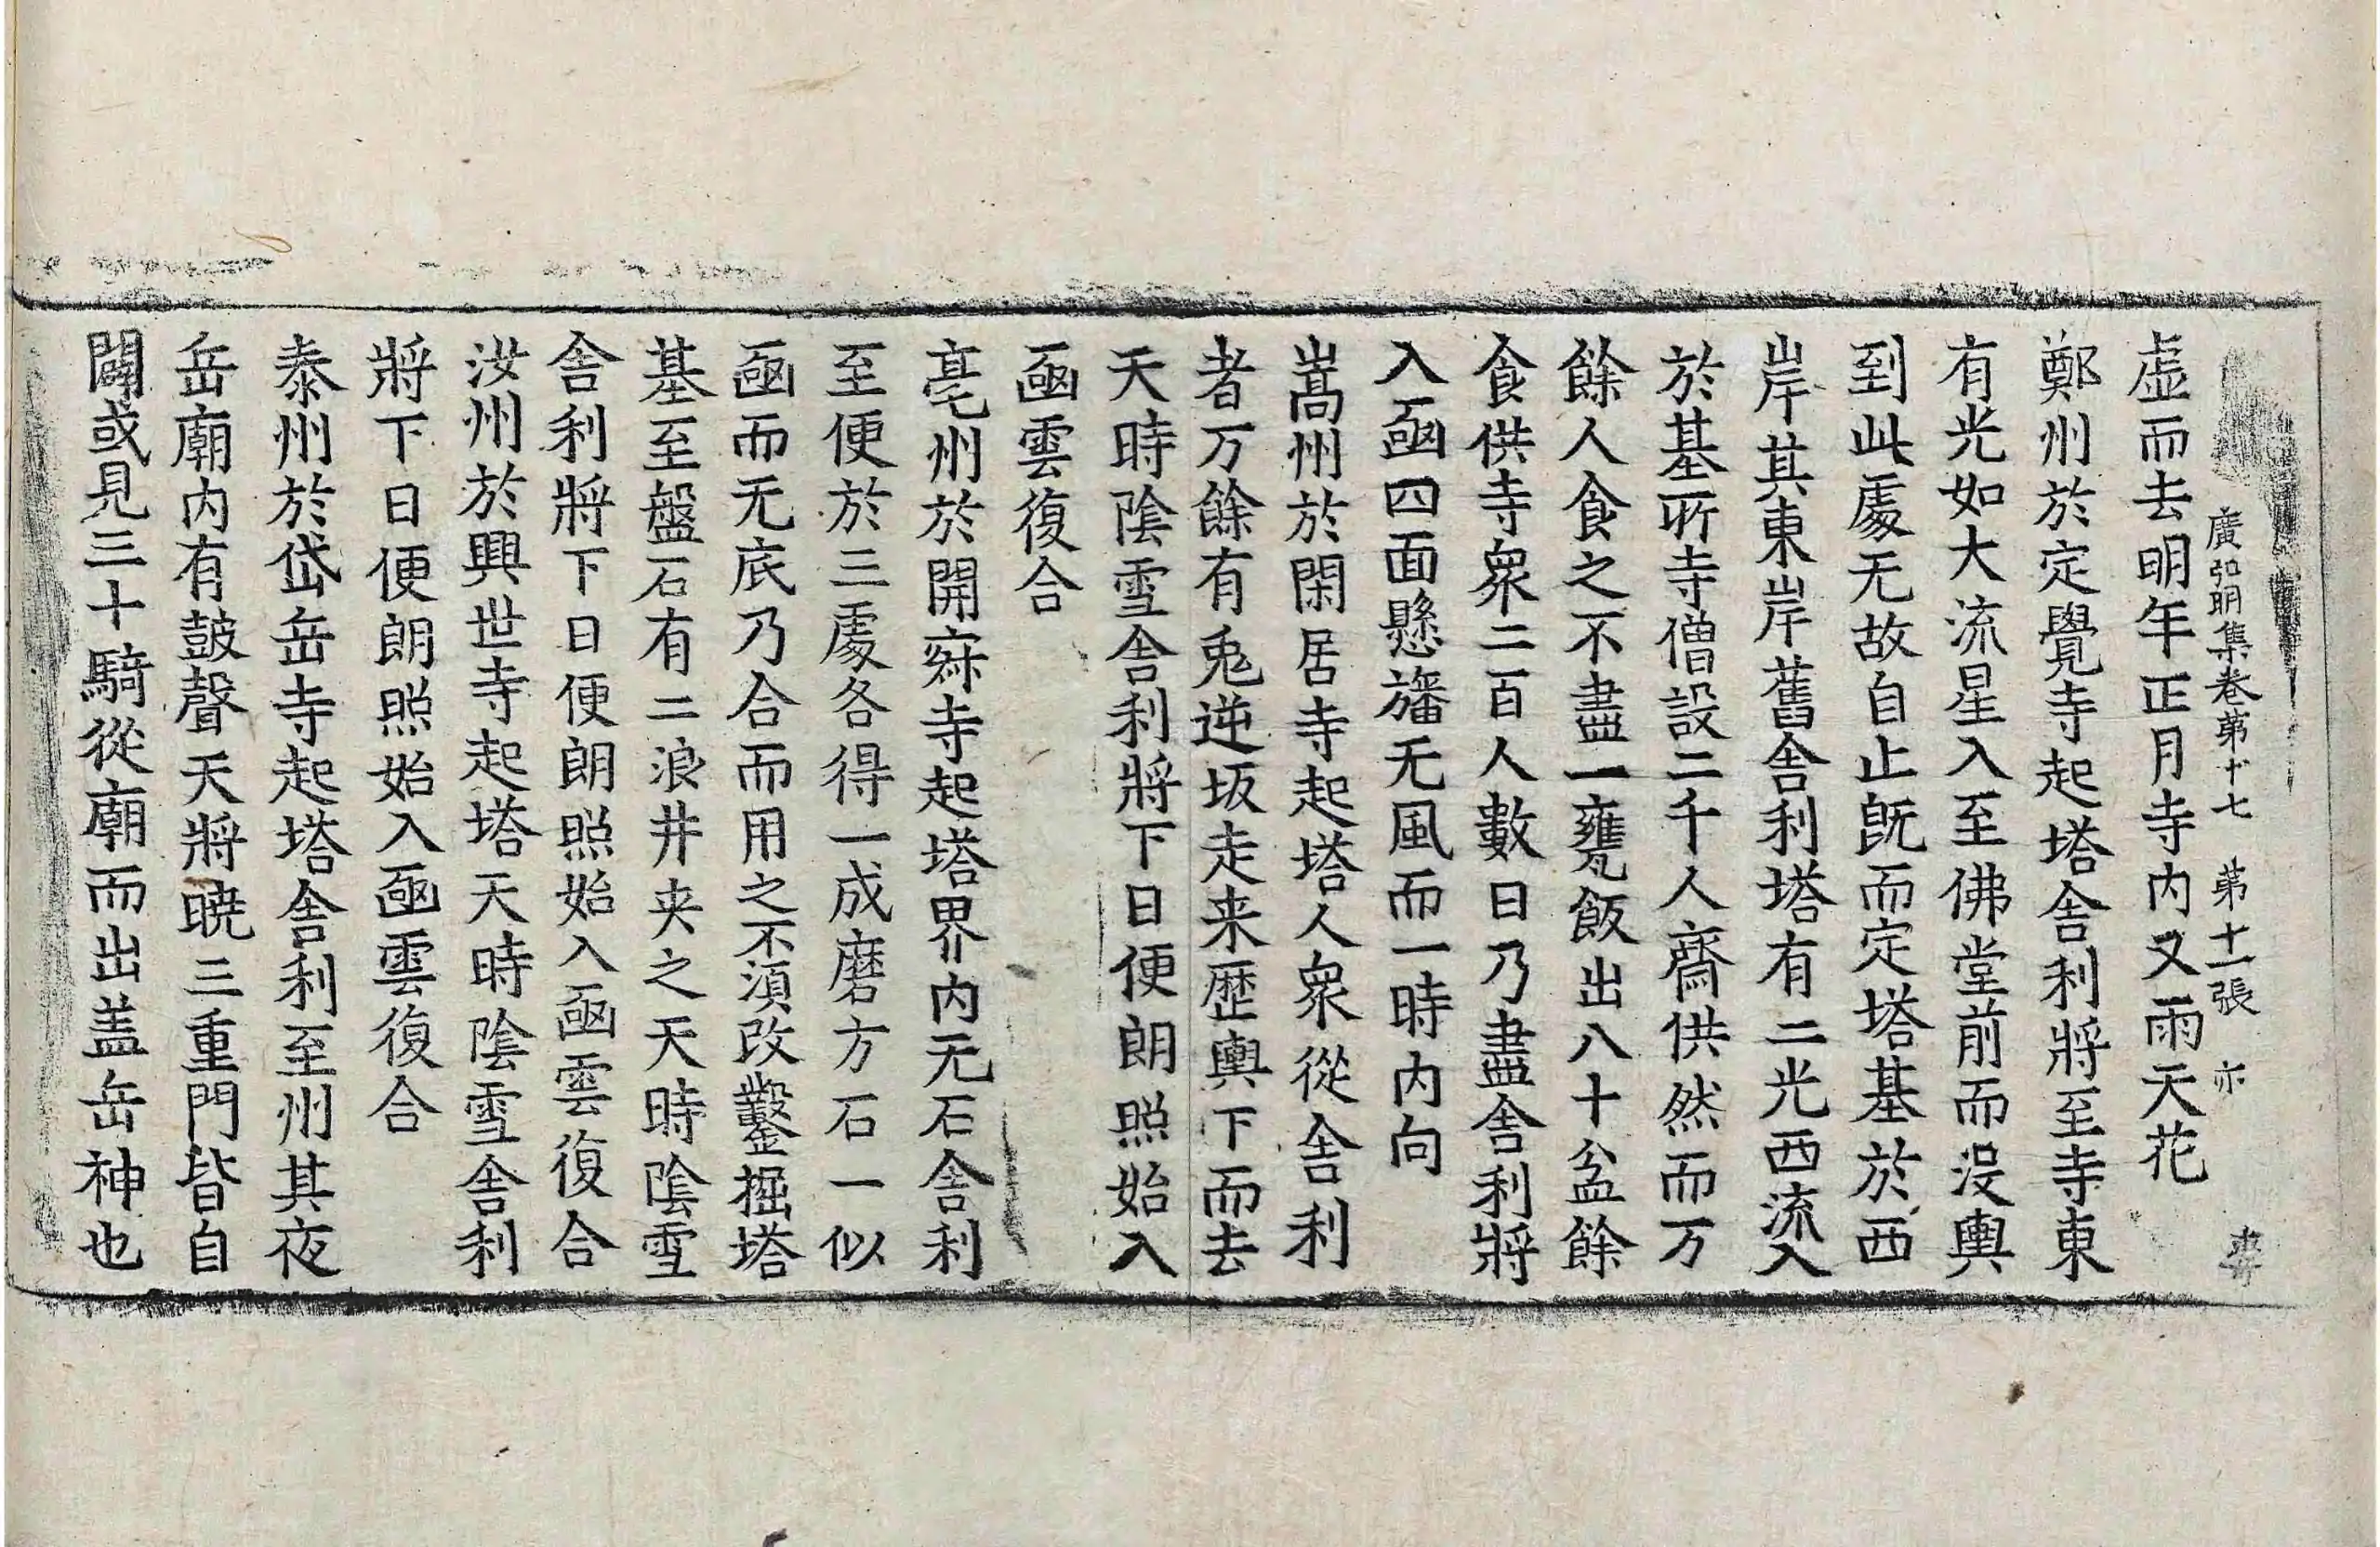 廣弘明集卷第十七 第十一張 亦
虛而去明年正月寺內又雨天花
鄭州於定覺寺起塔舍利將至寺東
有光如大流星入至佛堂前而沒輿
到此處无故自止旣而定塔基於西
岸其東岸舊舍利塔有二光西流入
於基所寺僧設二千人齋供然而万
餘人食之不盡一甕飯出八十盆餘
食供寺衆二百人數日乃盡舍利將
入凾四面懸旛无風而一時內向
嵩州於閑居寺起塔人衆從舍利
者万餘有兎逆坂走来歷輿下而去
天時陰雪舍利將下日便朗照始入
凾雲復合
亳州於開寂寺起塔界內无石舍利
至便於三處各得一成磨方石一似
凾而无底乃合而用之不湏改鑿掘塔
基至盤石有二浪井夹之天時陰雪
舍利將下日便朗照始入凾雲復合
汝州於興世寺起塔天時陰雪舍利
將下日便朗照始入凾雲復合
泰州於岱岳寺起塔舍利至州其夜
岳廟內有鼓聲天將曉三重門皆自
闢或見三十騎從廟而出盖岳神也